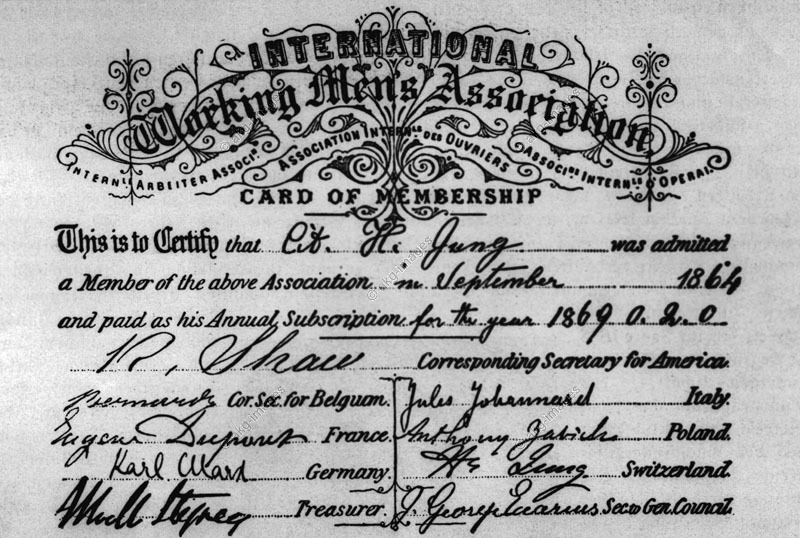 INTERNATIONAL
Working Men's Association
INTERN.LE ARBEITER ASSOCI.N ASSOCIATION INTERN.LE DES OUVRIERS ASSOCI.NE INTERN.LE D'OPERAI.
CARD OF MEMBERSHIP
This is to Certify that Cit. H. Jung was admitted
a Member of the above Association in September 1864
and paid as his Annual Subscription for the year 1869 0.2.0
R. Shaw Corresponding Secretary for America.
Bernard Cor. Sec. for Belgium. Jules Johannard Italy.
Eugene Dupont France. Anthony Zabicki Poland.
Karl Marx Germany. H. Jung Switzerland.
Cowell Stepney Treasurer. J. George Eccarius Sec. to Gen. Council.
© akg-images